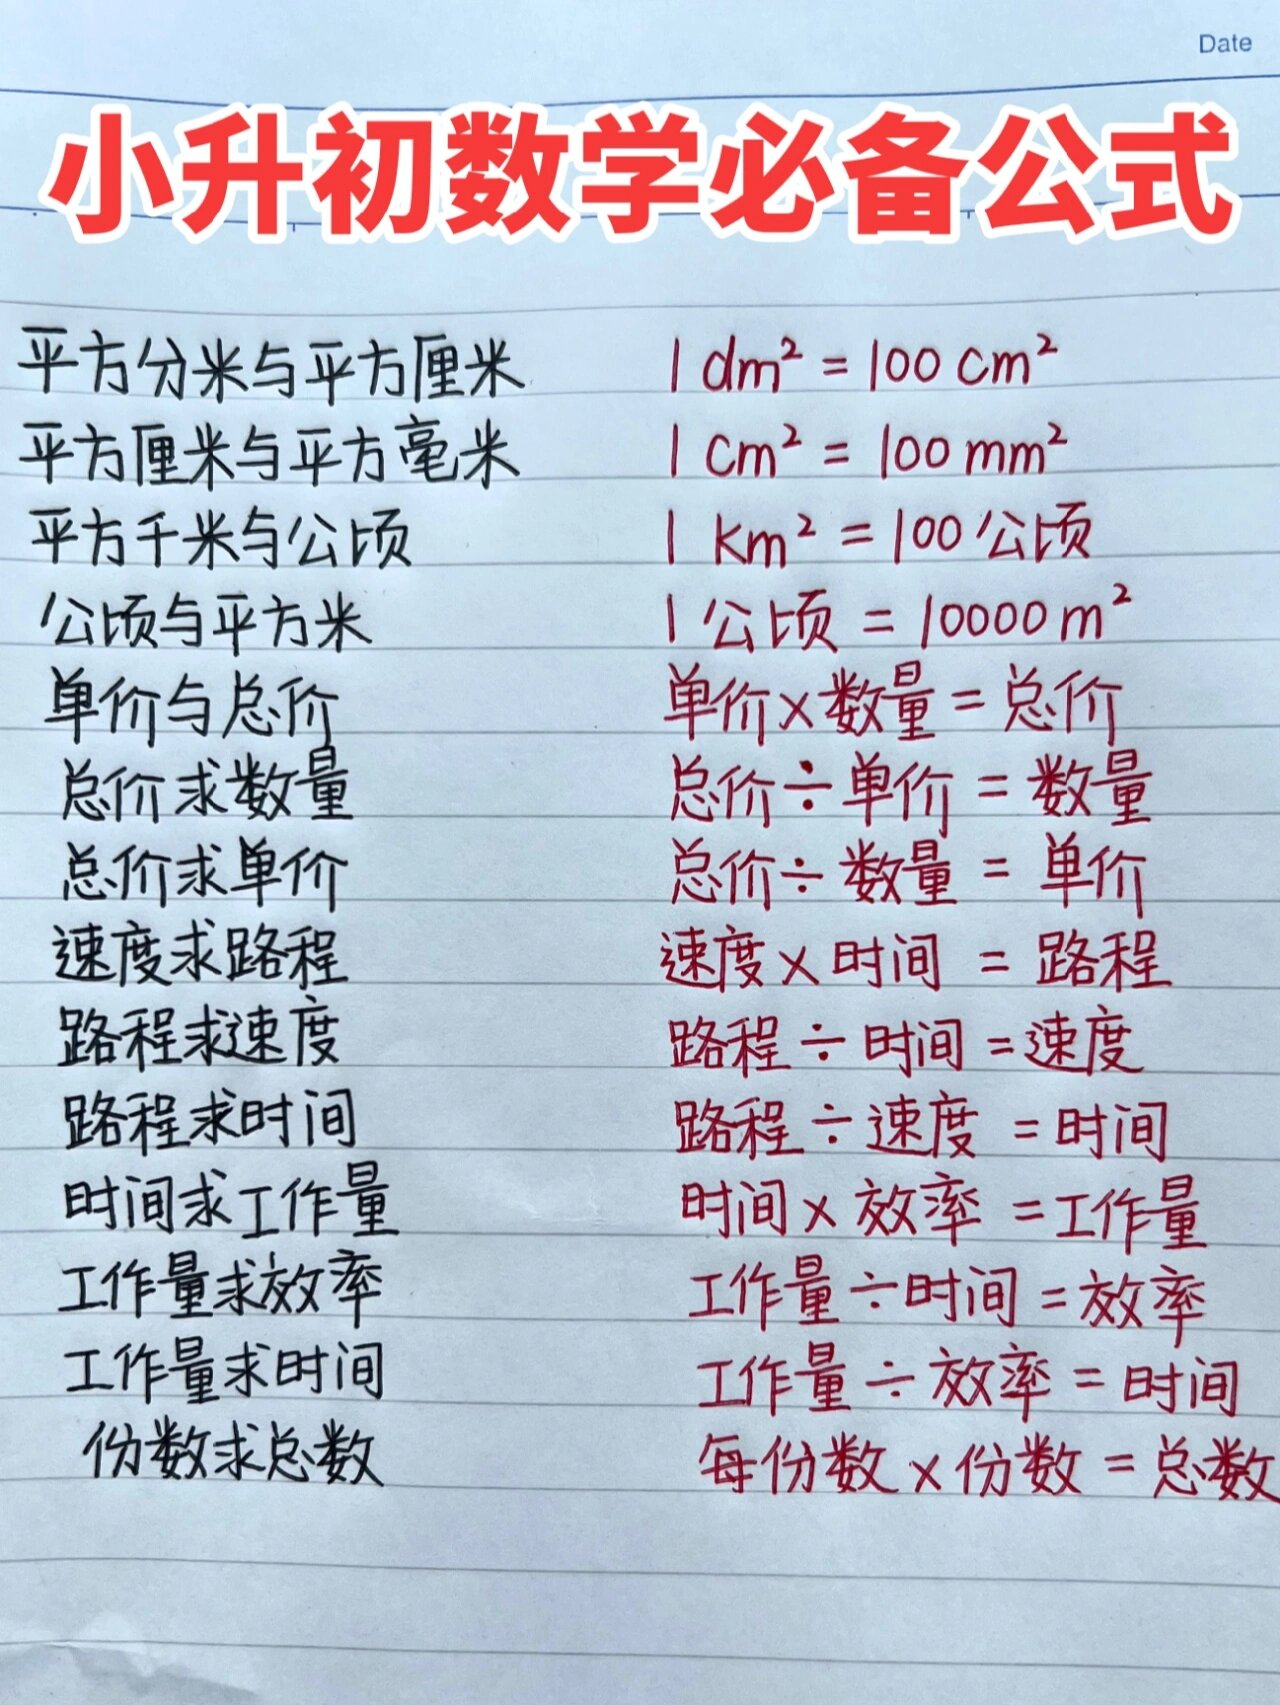 Date
小升初数学必备公式
平方分米与平方厘米 1 dm² = 100 cm²
平方厘米与平方毫米 1 cm² = 100 mm²
平方千米与公顷 1 km² = 100 公顷
公顷与平方米 1 公顷 = 10000 m²
单价与总价 单价×数量 = 总价
总价求数量 总价÷单价 = 数量
总价求单价 总价÷数量 = 单价
速度求路程 速度×时间 = 路程
路程求速度 路程÷时间 = 速度
路程求时间 路程÷速度 = 时间
时间求工作量 时间×效率 = 工作量
工作量求效率 工作量÷时间 = 效率
工作量求时间 工作量÷效率 = 时间
份数求总数 每份数×份数 = 总数